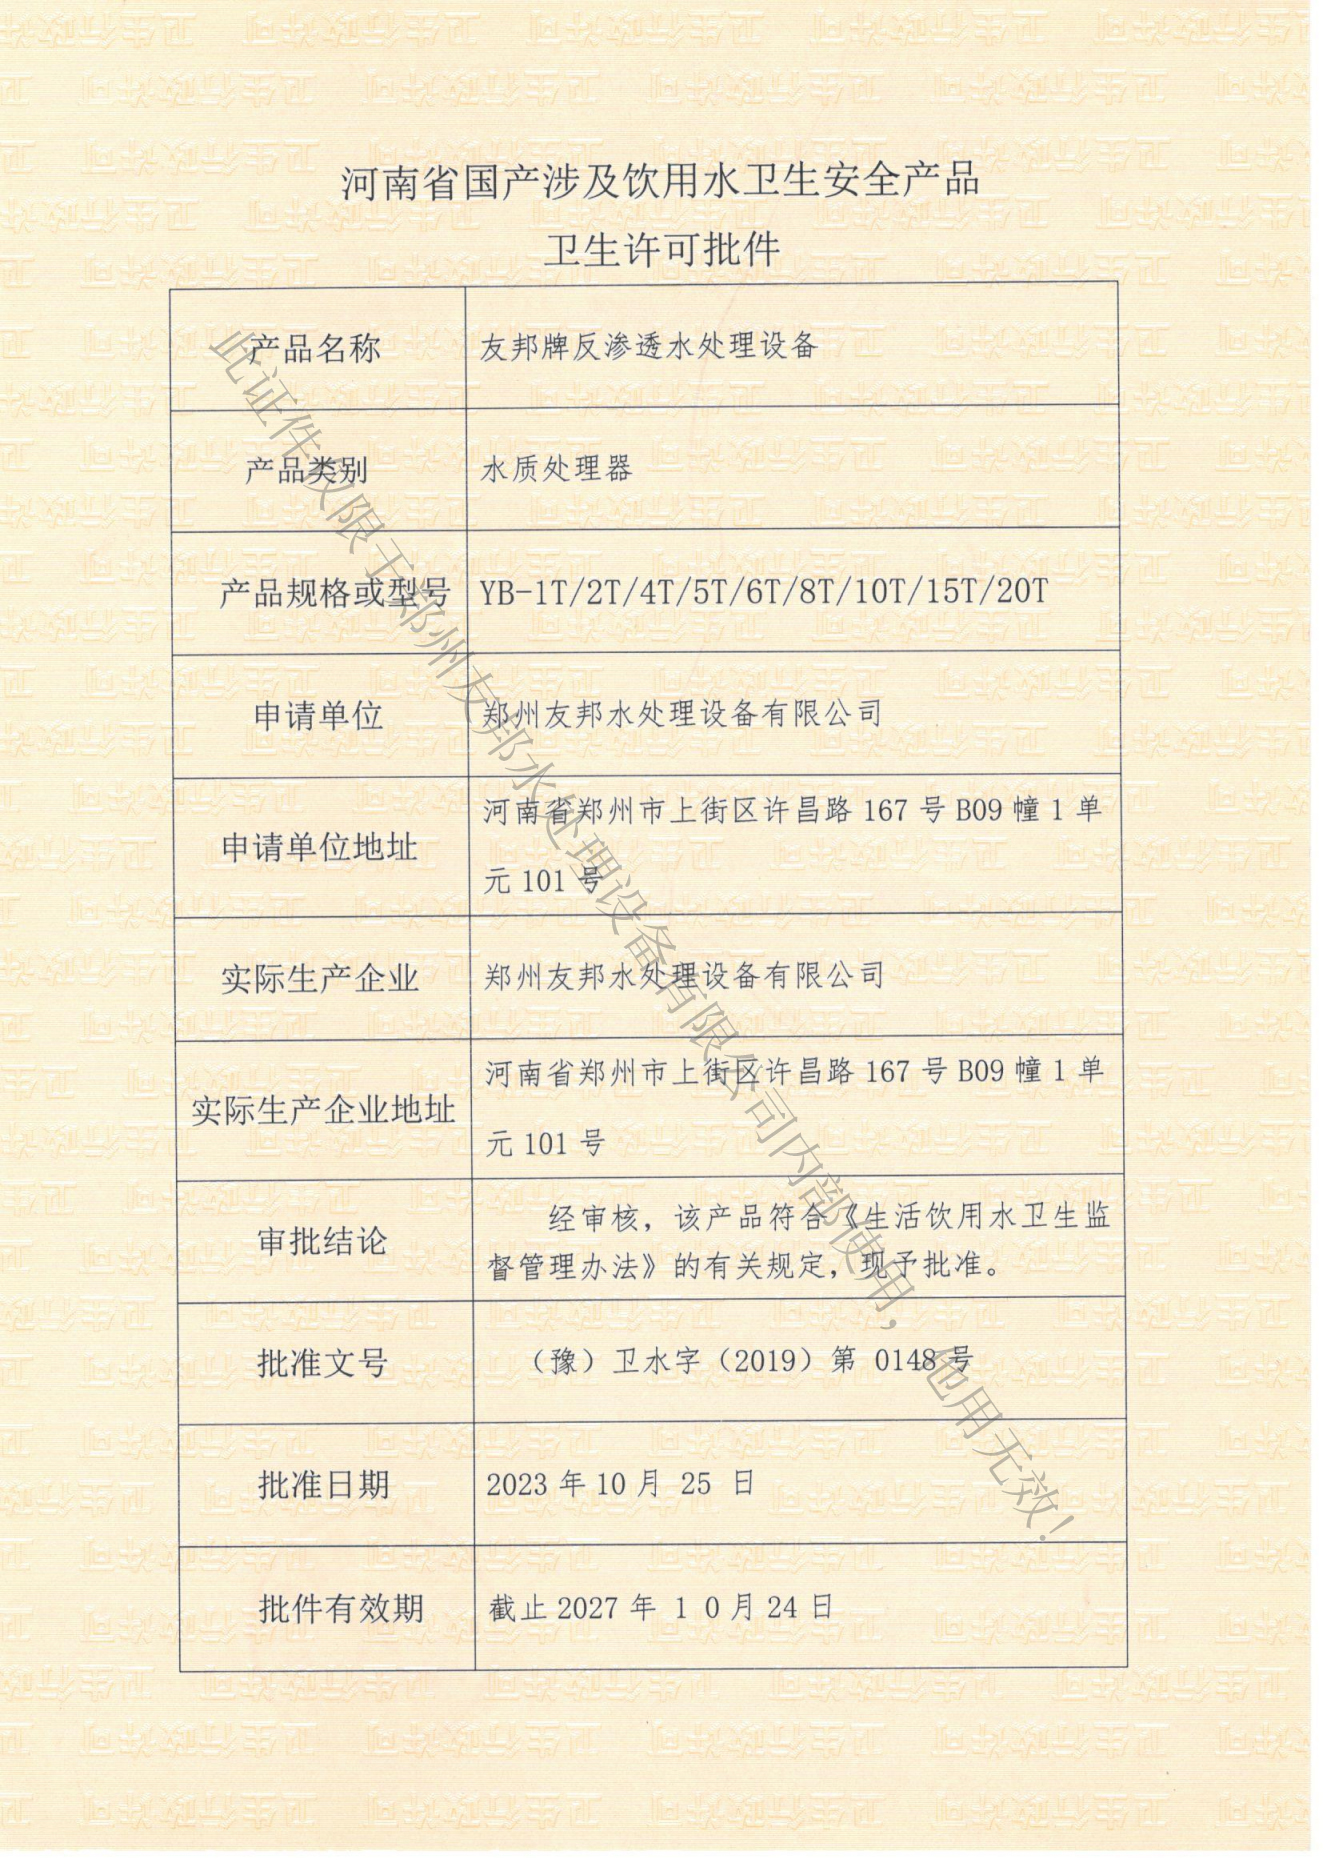 河南省国产涉及饮用水卫生安全产品
卫生许可批件
产品名称 友邦牌反渗透水处理设备
产品类别 水质处理器
产品规格或型号 YB-1T/2T/4T/5T/6T/8T/10T/15T/20T
申请单位 郑州友邦水处理设备有限公司
申请单位地址 河南省郑州市上街区许昌路 167 号 B09 幢 1 单
元 101 号
实际生产企业 郑州友邦水处理设备有限公司
实际生产企业地址 河南省郑州市上街区许昌路 167 号 B09 幢 1 单
元 101 号
审批结论 经审核，该产品符合《生活饮用水卫生监
督管理办法》的有关规定，现予批准。
批准文号 （豫）卫水字（2019）第 0148 号
批准日期 2023 年 10 月 25 日
批件有效期 截止 2027 年 1 0 月 24 日
此证件仅限于郑州友邦水处理设备有限公司内部使用，他用无效！
卫生行政许可